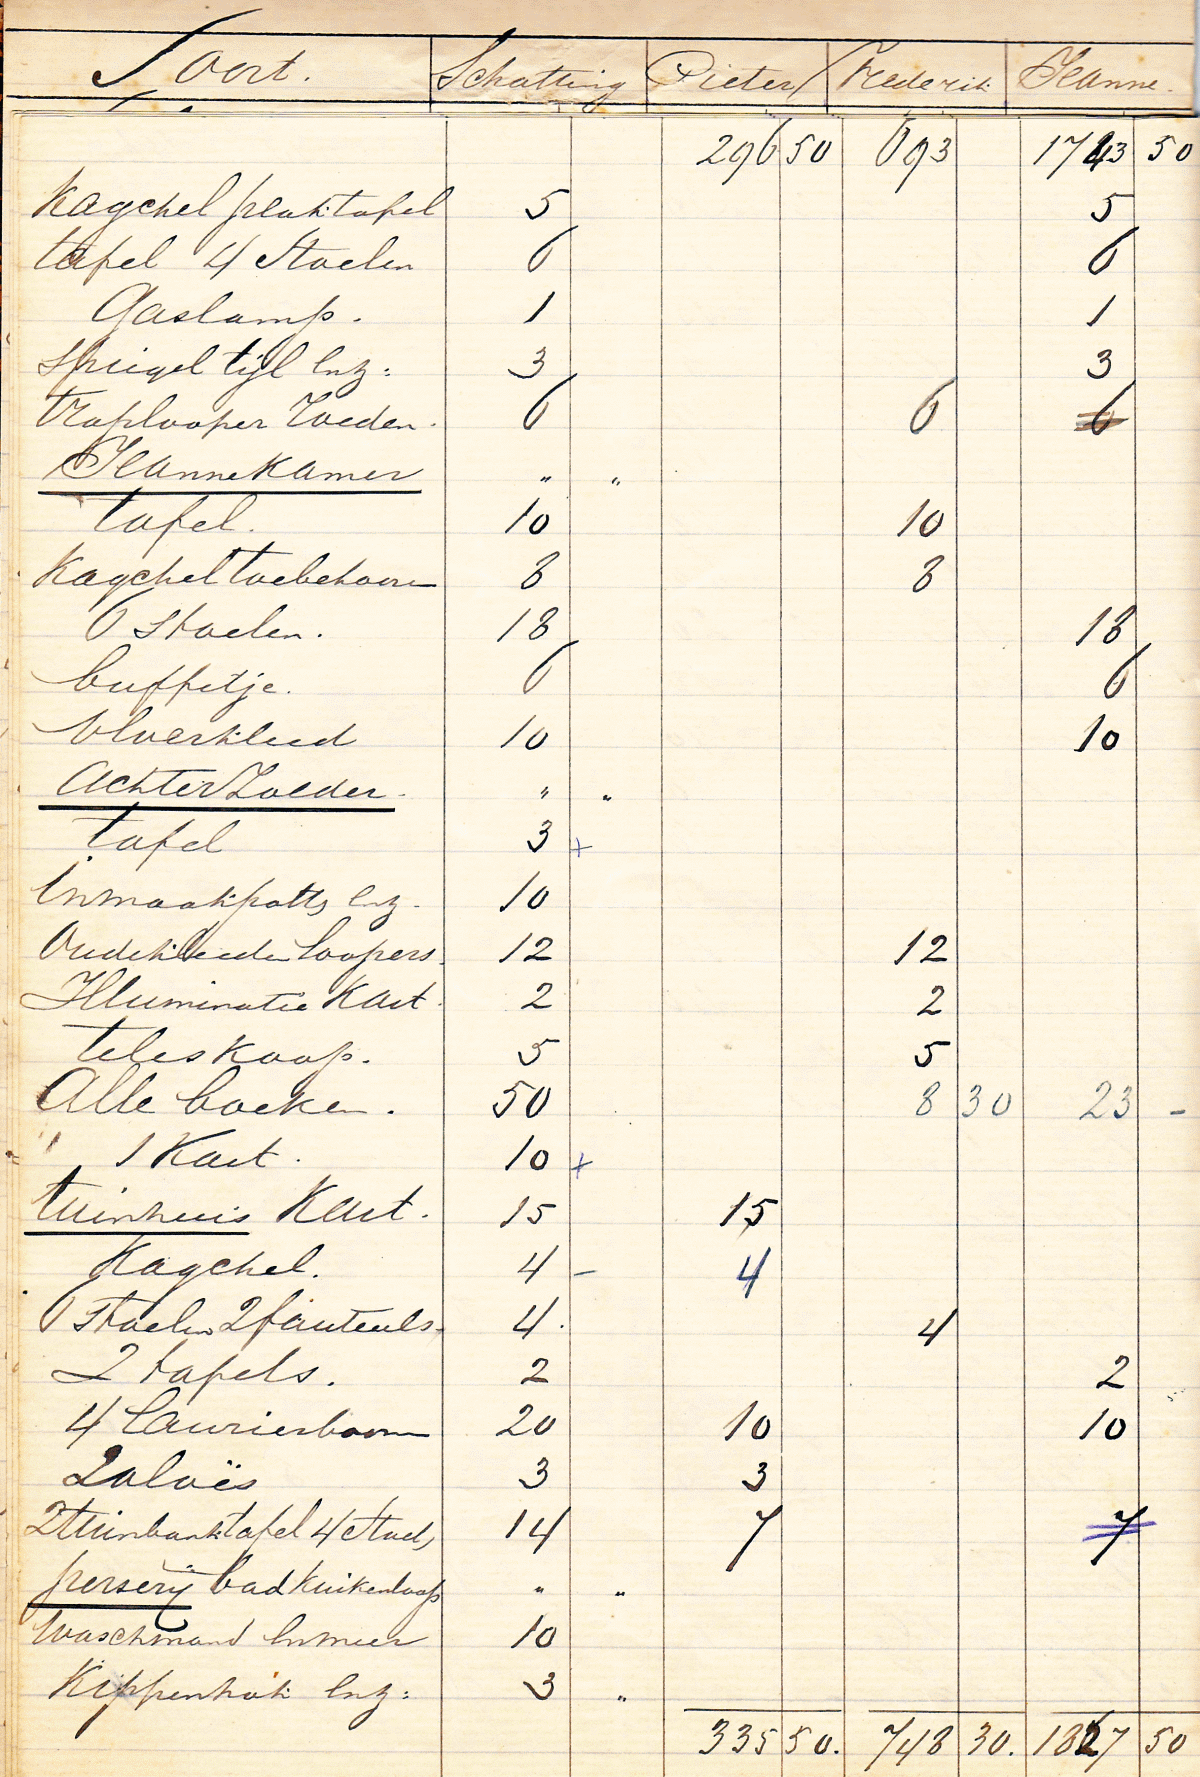 Soort. Schatting Pieter Frederik Jeanne.
296 50 693 1743 50
Kagchel penktafel 5 5
tafel 4 Stoelen 6 6
Gaslamp. 1 1
Spiegel tijl Enz: 3 3
traplooper Zolder. 6 6 6
Jeanne Kamer " "
tafel. 10 10
Kagchel toebehooren 8 8
6 Stoelen. 18 18
buffetje. 6 6
Vloerkleed 10 10
Achter Zolder. " "
tafel 3 +
Inmaakpotts Enz. 10
Oudekleeden Loopers. 12 12
Illuminatie Kast. 2 2
teleskoop. 5 5
Alle boeken. 50 8 30 23 -
" 1 Kast. 10 +
tuinhuis Kast. 15 15
Kagchel. 4 - 4
6 Stoelen 2 fauteuls. 4. 4
2 tafels. 2 2
4 Laurierboomen 20 10 10
2 aloës 3 3
2 tuinbank tafel 4 Stoel, 14 7 7
perserij bad Kuikenloop " "
Waschmand Enmeer 10
Kippenhok Enz: 3 "
335 50. 748 30. 1827 50